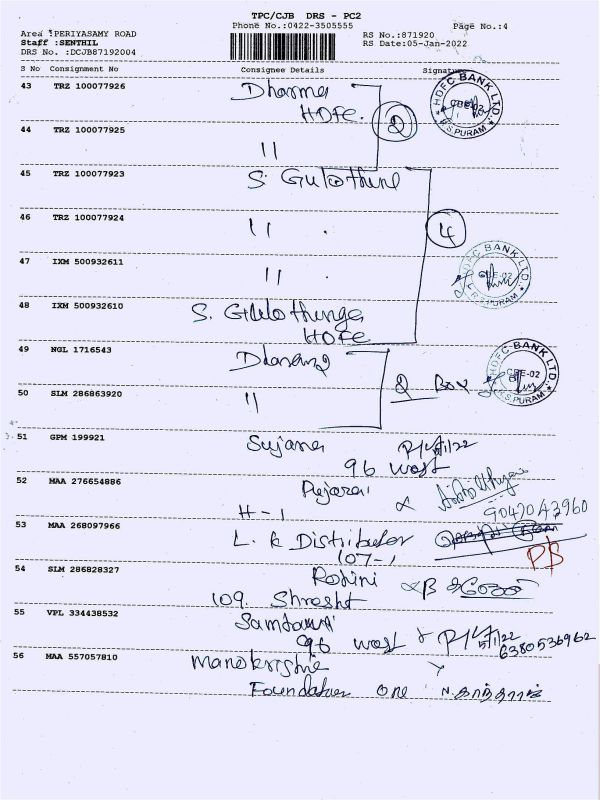 TPC/CJB DRS - PC2
Phone No.:0422-3505555
Page No.:4
Area :PERIYASAMY ROAD
Staff :SENTHIL
DRS No. :DCJB87192004
RS No.:871920
RS Date:05-Jan-2022
S No Consignment No Consignee Details Signature
43 TRZ 100077926 Dharma
HDFC.
2
HDFC BANK LTD.
R.S PURAM
44 TRZ 100077925 11
45 TRZ 100077923 S.
46 TRZ 100077924 11
4
47 IXM 500932611 11
HDFC BANK LTD.
R.S PURAM
48 IXM 500932610 S.
HDFC
49 NGL 1716543
HDFC BANK LTD.
CBE-02
R.S PURAM
50 SLM 286863920 11
2 Box
51 GPM 199921 Sujana
96 west
52 MAA 276654886
H-1
9042042960
53 MAA 268097966 L. K Distributor
107-1
PB
54 SLM 286828327 Rohini
109. Shresht
55 VPL 334438532
96 west
6380536962
56 MAA 557057810
Foundation one